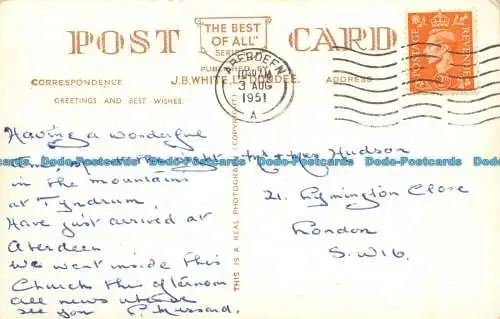 POST CARD
"THE BEST
OF ALL"
SERIES
PUBLISHED BY
J.B. WHITE, LTD. DUNDEE.
CORRESPONDENCE
ADDRESS
GREETINGS AND BEST WISHES.
ABERDEEN
3 AUG
1951
A
POSTAGE
REVENUE
THIS IS A REAL PHOTOGRAPH (COPYRIGHT)
Having a wonderful
time, spent the night
in the mountains
at Tyndrum,
Have just arrived at
Aberdeen
We went inside this
Church this afternoon
all news when
see you
Mr & Mrs Hudson
21. Lymington Close
London
S.W.16.
Dodo-Postcards Dodo-Postcards Dodo-Postcards Dodo-Postcards Dodo-Postcards